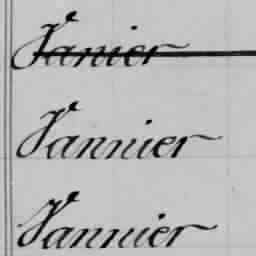 Vanier
Vannier
Vannier